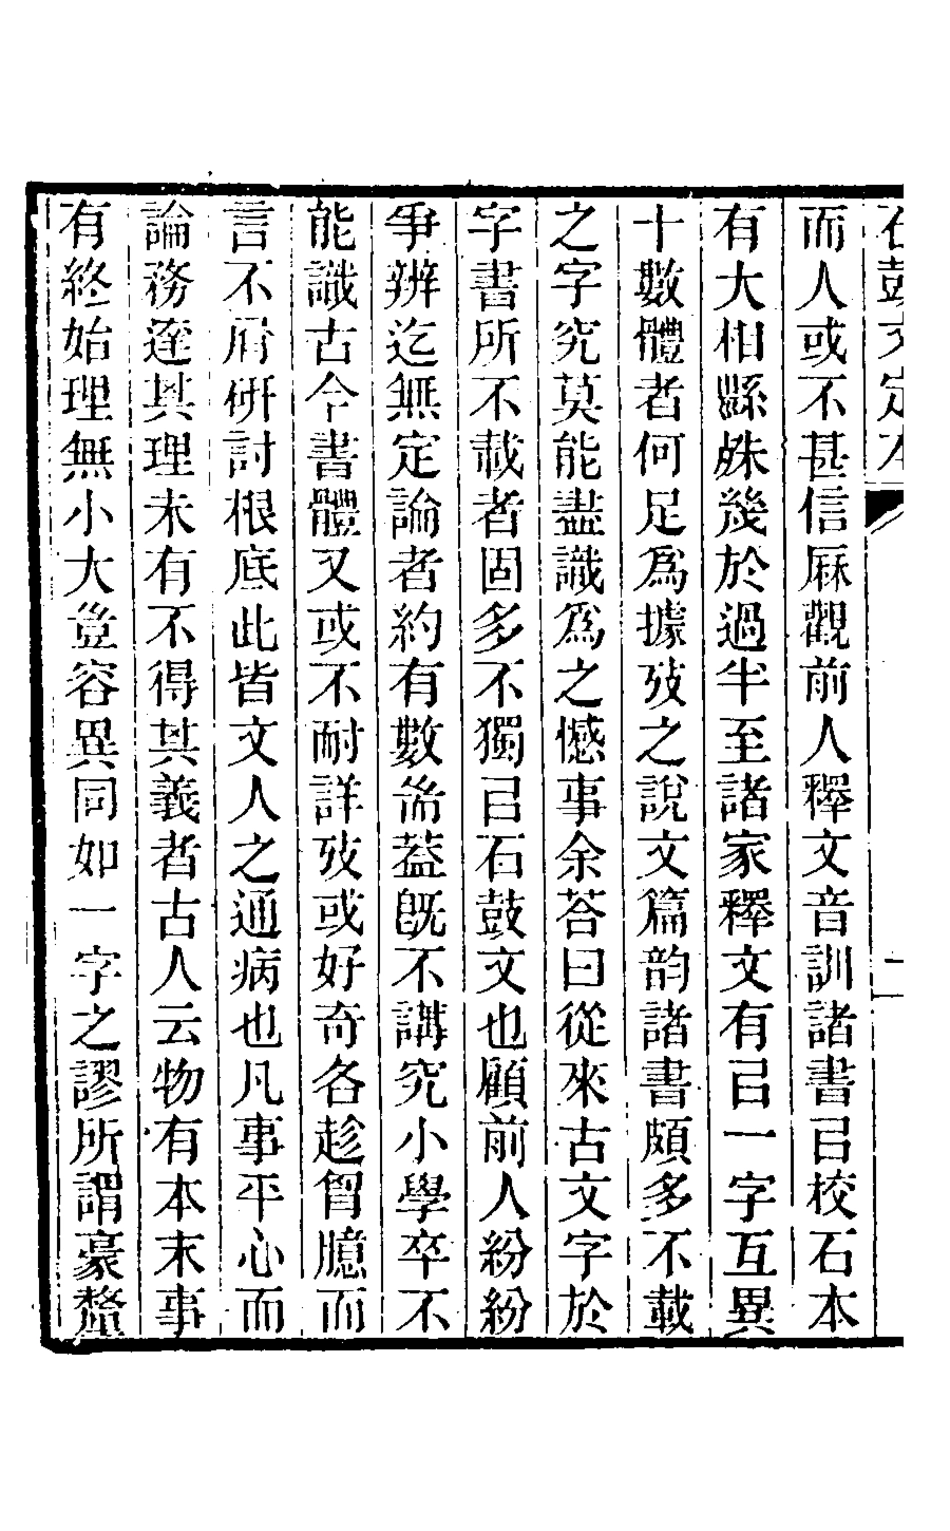 石鼓文定本 一
而人或不甚信厤觀前人釋文音訓諸書㠯校石本
有大相縣殊幾於過半至諸家釋文有㠯一字互異
十數體者何足爲據攷之說文篇韵諸書頗多不載
之字究莫能盡識爲之憾事余荅曰從來古文字於
字書所不載者固多不獨㠯石鼓文也顧前人紛紛
爭辨迄無定論者約有數耑葢旣不講究小學卒不
能識古今書體又或不耐詳攷或好奇各趁胷臆而
言不屑硏討根底此皆文人之通病也凡事平心而
論務達其理未有不得其義者古人云物有本末事
有終始理無小大豈容異同如一字之謬所謂豪釐